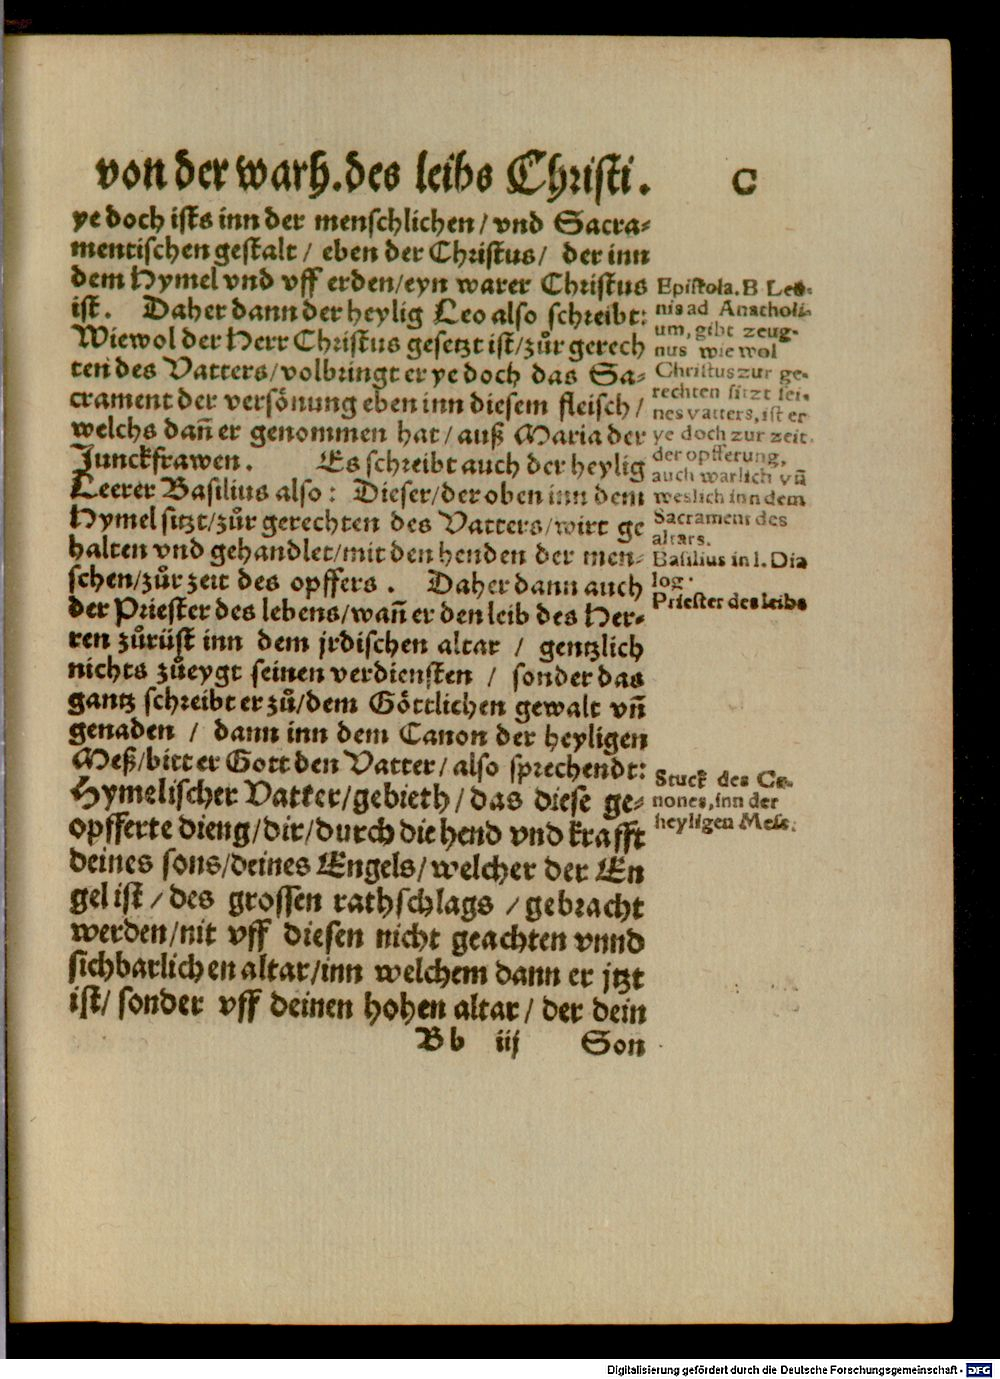 von der warh. des leibs Christi. C
ye doch ists inn der menschlichen / vnd Sacra-
mentischen gestalt / eben der Christus / der inn
dem Hymel vnd vff erden / eyn warer Christus
ist. Daher dann der heylig Leo also schreibt:
Wiewol der Herr Christus gesetzt ist / zůr gerech
ten des Vatters / volbringt er ye doch das Sa-
crament der versönung eben inn diesem fleisch /
welchs dañ er genommen hat / auß Maria der
Junckfrawen. Es schreibt auch der heylig
Leerer Basilius also: Dieser / der oben inn dem
Hymel sitzt / zůr gerechten des Vatters / wirt ge
halten vnd gehandlet / mit den henden der men-
schen / zůr zeit des opffers. Daher dann auch
der Priester des lebens / wañ er den leib des Her-
ren zůrüst inn dem jrdischen altar / gentzlich
nichts zůeygt seinen verdiensten / sonder das
gantz schreibt er zů / dem Göttlichen gewalt vñ
genaden / dann inn dem Canon der heyligen
Meß / bitt er Gott den Vatter / also sprechendt:
Hymelischer Vatter / gebieth / das diese ge-
opfferte dieng / dir / durch die hend vnd krafft
deines sons / deines Engels / welcher der En
gel ist / des grossen rathschlags / gebracht
werden / nit vff diesen nicht geachten vnnd
sichbarlichen altar / inn welchem dann er jtzt
ist / sonder vff deinen hohen altar / der dein
Bb iij Son
Epistola. B Leo-
nis ad Anatholi-
um, gibt zeug-
nus wie wol
Christus zur ge-
rechten sitzt sei-
nes vatters, ist er
ye doch zur zeit
der opfferung,
auch warlich vñ
weslich inn dem
Sacrament des
altars.
Basilius in l. Dia
log.
Priester des leibs
Stuck des Ca-
nones, inn der
heyligen Mess.
Digitalisierung gefördert durch die Deutsche Forschungsgemeinschaft - DFG